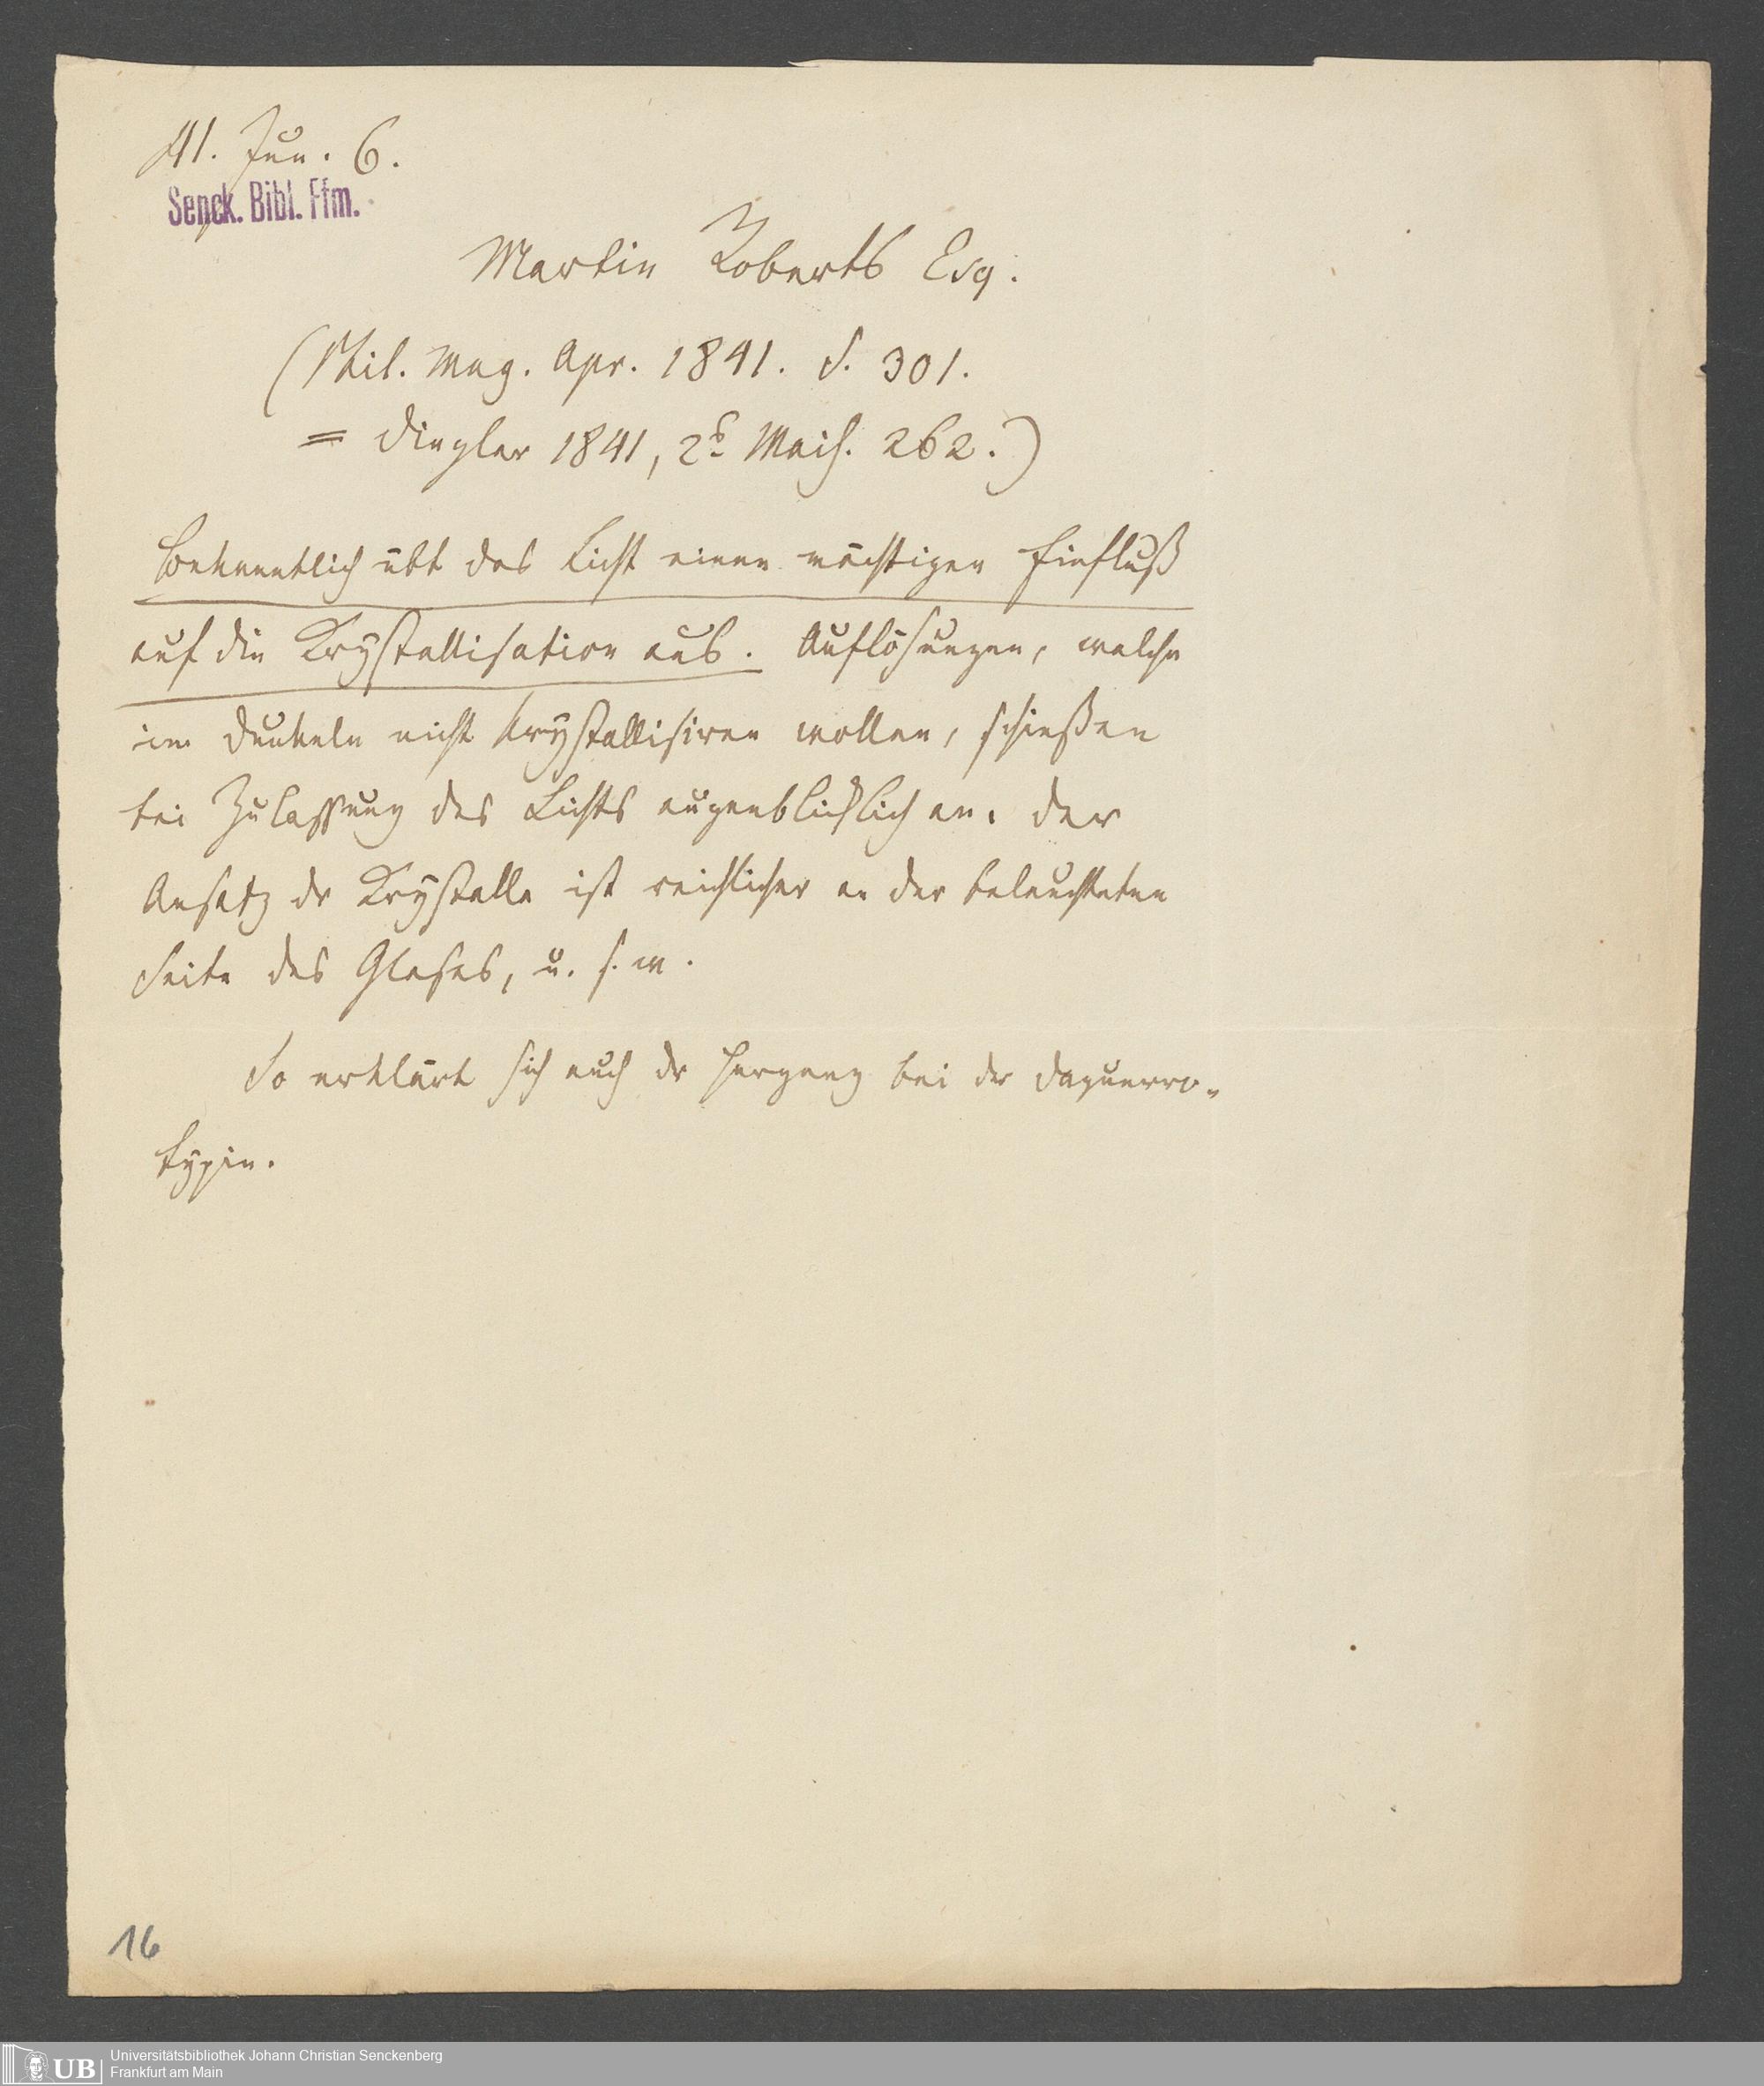 41. Jun. 6.
Senck. Bibl. Ffm.
Martin Roberts Esq.
(Phil. Mag. Apr. 1841. S. 301.
= Dingler 1841, 2s Maih. 262.)
Bekanntlich übt das Licht einen mächtigen Einfluß
auf die Krystallisation aus. Auflösungen, welche
im Dunkeln nicht krystallisiren wollen, schießen
bei Zulassung des Lichts augenblicklich an. Der
Ansatz der Krystalle ist reichlicher an der beleuchteten
Seite des Glases, u. s. w.
So erklärt sich auch der Hergang bei der Daguerro-
typie.
16
UB
Universitätsbibliothek Johann Christian Senckenberg
Frankfurt am Main